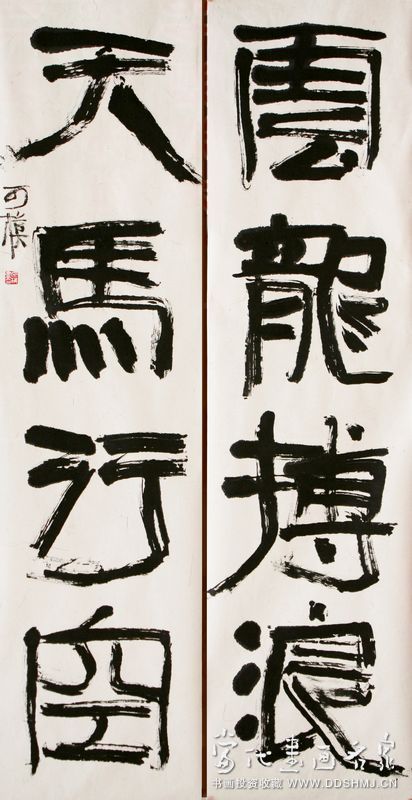 雲龍搏浪
天馬行空
可樸
當代書画名家
书画投资收藏 WWW.DDSHMJ.CN